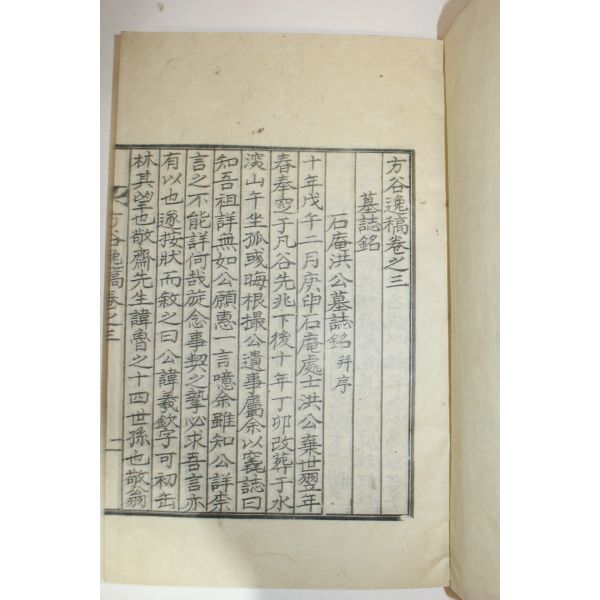 方谷逸稿卷之三
墓誌銘
石庵洪公墓誌銘 幷序
十年戊午二月庚申石庵處士洪公棄世翌年
春奉窆于凡谷先兆下後十年丁卯改葬于水
溪山午坐孤或晦根撮公遺事屬余以竁誌曰
知吾祖詳無如公願惠一言噫余雖知公詳柰
言之不能詳何哉旋念事契之摯必求吾言亦
有以也遂按狀而敘之曰公諱羲欽字可初缶
林其望也敬齋先生諱魯之十四世孫也敬翁
方谷逸稿卷之三 一